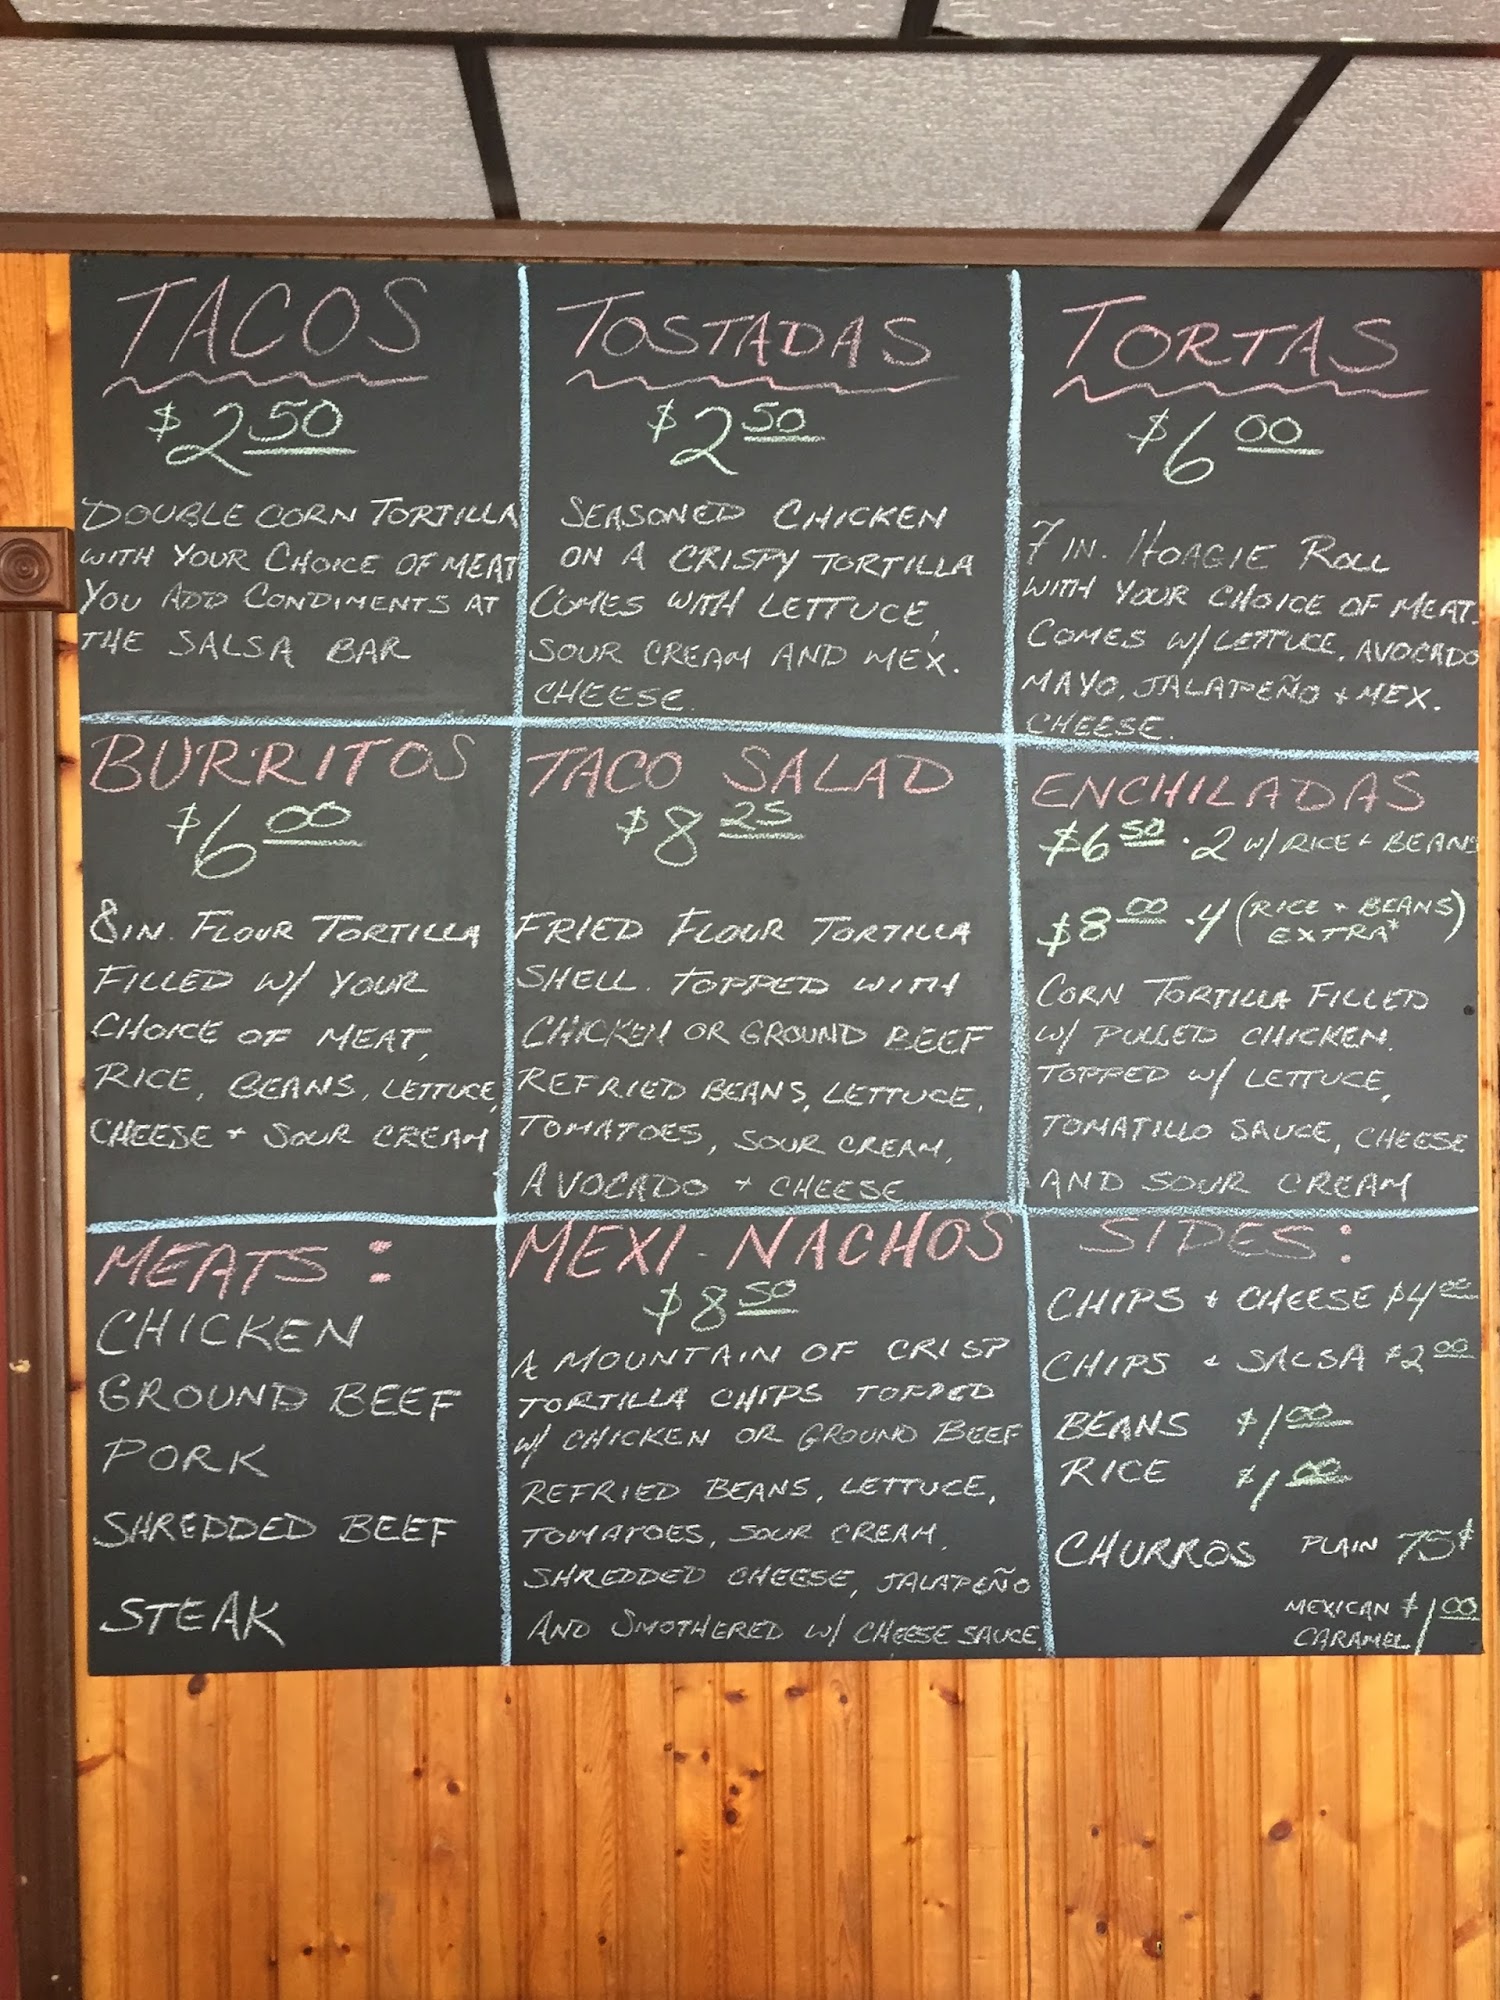 TACOS
$2.50
DOUBLE CORN TORTILLA
WITH YOUR CHOICE OF MEAT
YOU ADD CONDIMENTS AT
THE SALSA BAR
TOSTADAS
$2.50
SEASONED CHICKEN
ON A CRISPY TORTILLA
COMES WITH LETTUCE,
SOUR CREAM AND MEX.
CHEESE.
TORTAS
$6.00
7 IN. HOAGIE ROLL
WITH YOUR CHOICE OF MEAT.
COMES W/ LETTUCE, AVOCADO
MAYO, JALAPEÑO + MEX.
CHEESE.
BURRITOS
$6.00
8 IN. FLOUR TORTILLA
FILLED W/ YOUR
CHOICE OF MEAT,
RICE, BEANS, LETTUCE,
CHEESE + SOUR CREAM
TACO SALAD
$8.25
FRIED FLOUR TORTILLA
SHELL. TOPPED WITH
CHICKEN OR GROUND BEEF
REFRIED BEANS, LETTUCE,
TOMATOES, SOUR CREAM,
AVOCADO + CHEESE
ENCHILADAS
$6.50 · 2 W/ RICE + BEANS
$8.00 · 4 (RICE + BEANS
EXTRA*)
CORN TORTILLA FILLED
W/ PULLED CHICKEN.
TOPPED W/ LETTUCE,
TOMATILLO SAUCE, CHEESE
AND SOUR CREAM
MEATS:
CHICKEN
GROUND BEEF
PORK
SHREDDED BEEF
STEAK
MEXI-NACHOS
$8.50
A MOUNTAIN OF CRISP
TORTILLA CHIPS TOPPED
W/ CHICKEN OR GROUND BEEF
REFRIED BEANS, LETTUCE,
TOMATOES, SOUR CREAM,
SHREDDED CHEESE, JALAPEÑO
AND SMOTHERED W/ CHEESE SAUCE.
SIDES:
CHIPS + CHEESE $4.00
CHIPS + SALSA $2.00
BEANS $1.00
RICE $1.00
CHURROS PLAIN 75¢
MEXICAN $1.00
CARAMEL